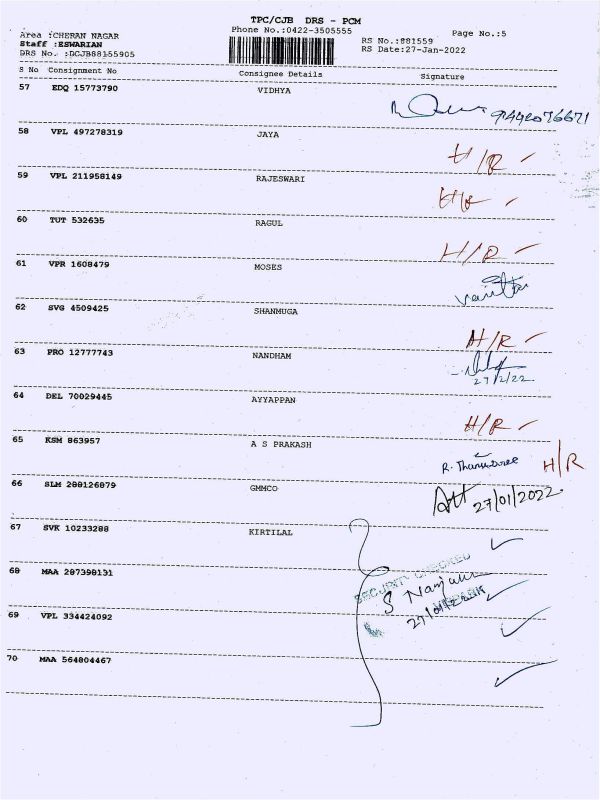 TPC/CJB DRS - PCM
Phone No.:0422-3505555
Area :CHERAN NAGAR
Staff :ESWARIAN
DRS No. :DCJB88155905
RS No.:881559
RS Date:27-Jan-2022
Page No.:5
S No Consignment No Consignee Details Signature
57 EDQ 15773790 VIDHYA
9442076671
58 VPL 497278319 JAYA
H/R
59 VPL 211958149 RAJESWARI
H/R
60 TUT 532635 RAGUL
H/R
61 VPR 1608479 MOSES
62 SVG 4509425 SHANMUGA
H/R
63 PRO 12777743 NANDHAM
27/2/22
64 DEL 70029445 AYYAPPAN
H/R
65 KSM 863957 A S PRAKASH
H/R
66 SLM 288126879 GMMCO
27/01/2022
67 SVK 10233288 KIRTILAL
68 MAA 287398131
SECURITY CHECKED
69 VPL 334424092
70 MAA 564804467